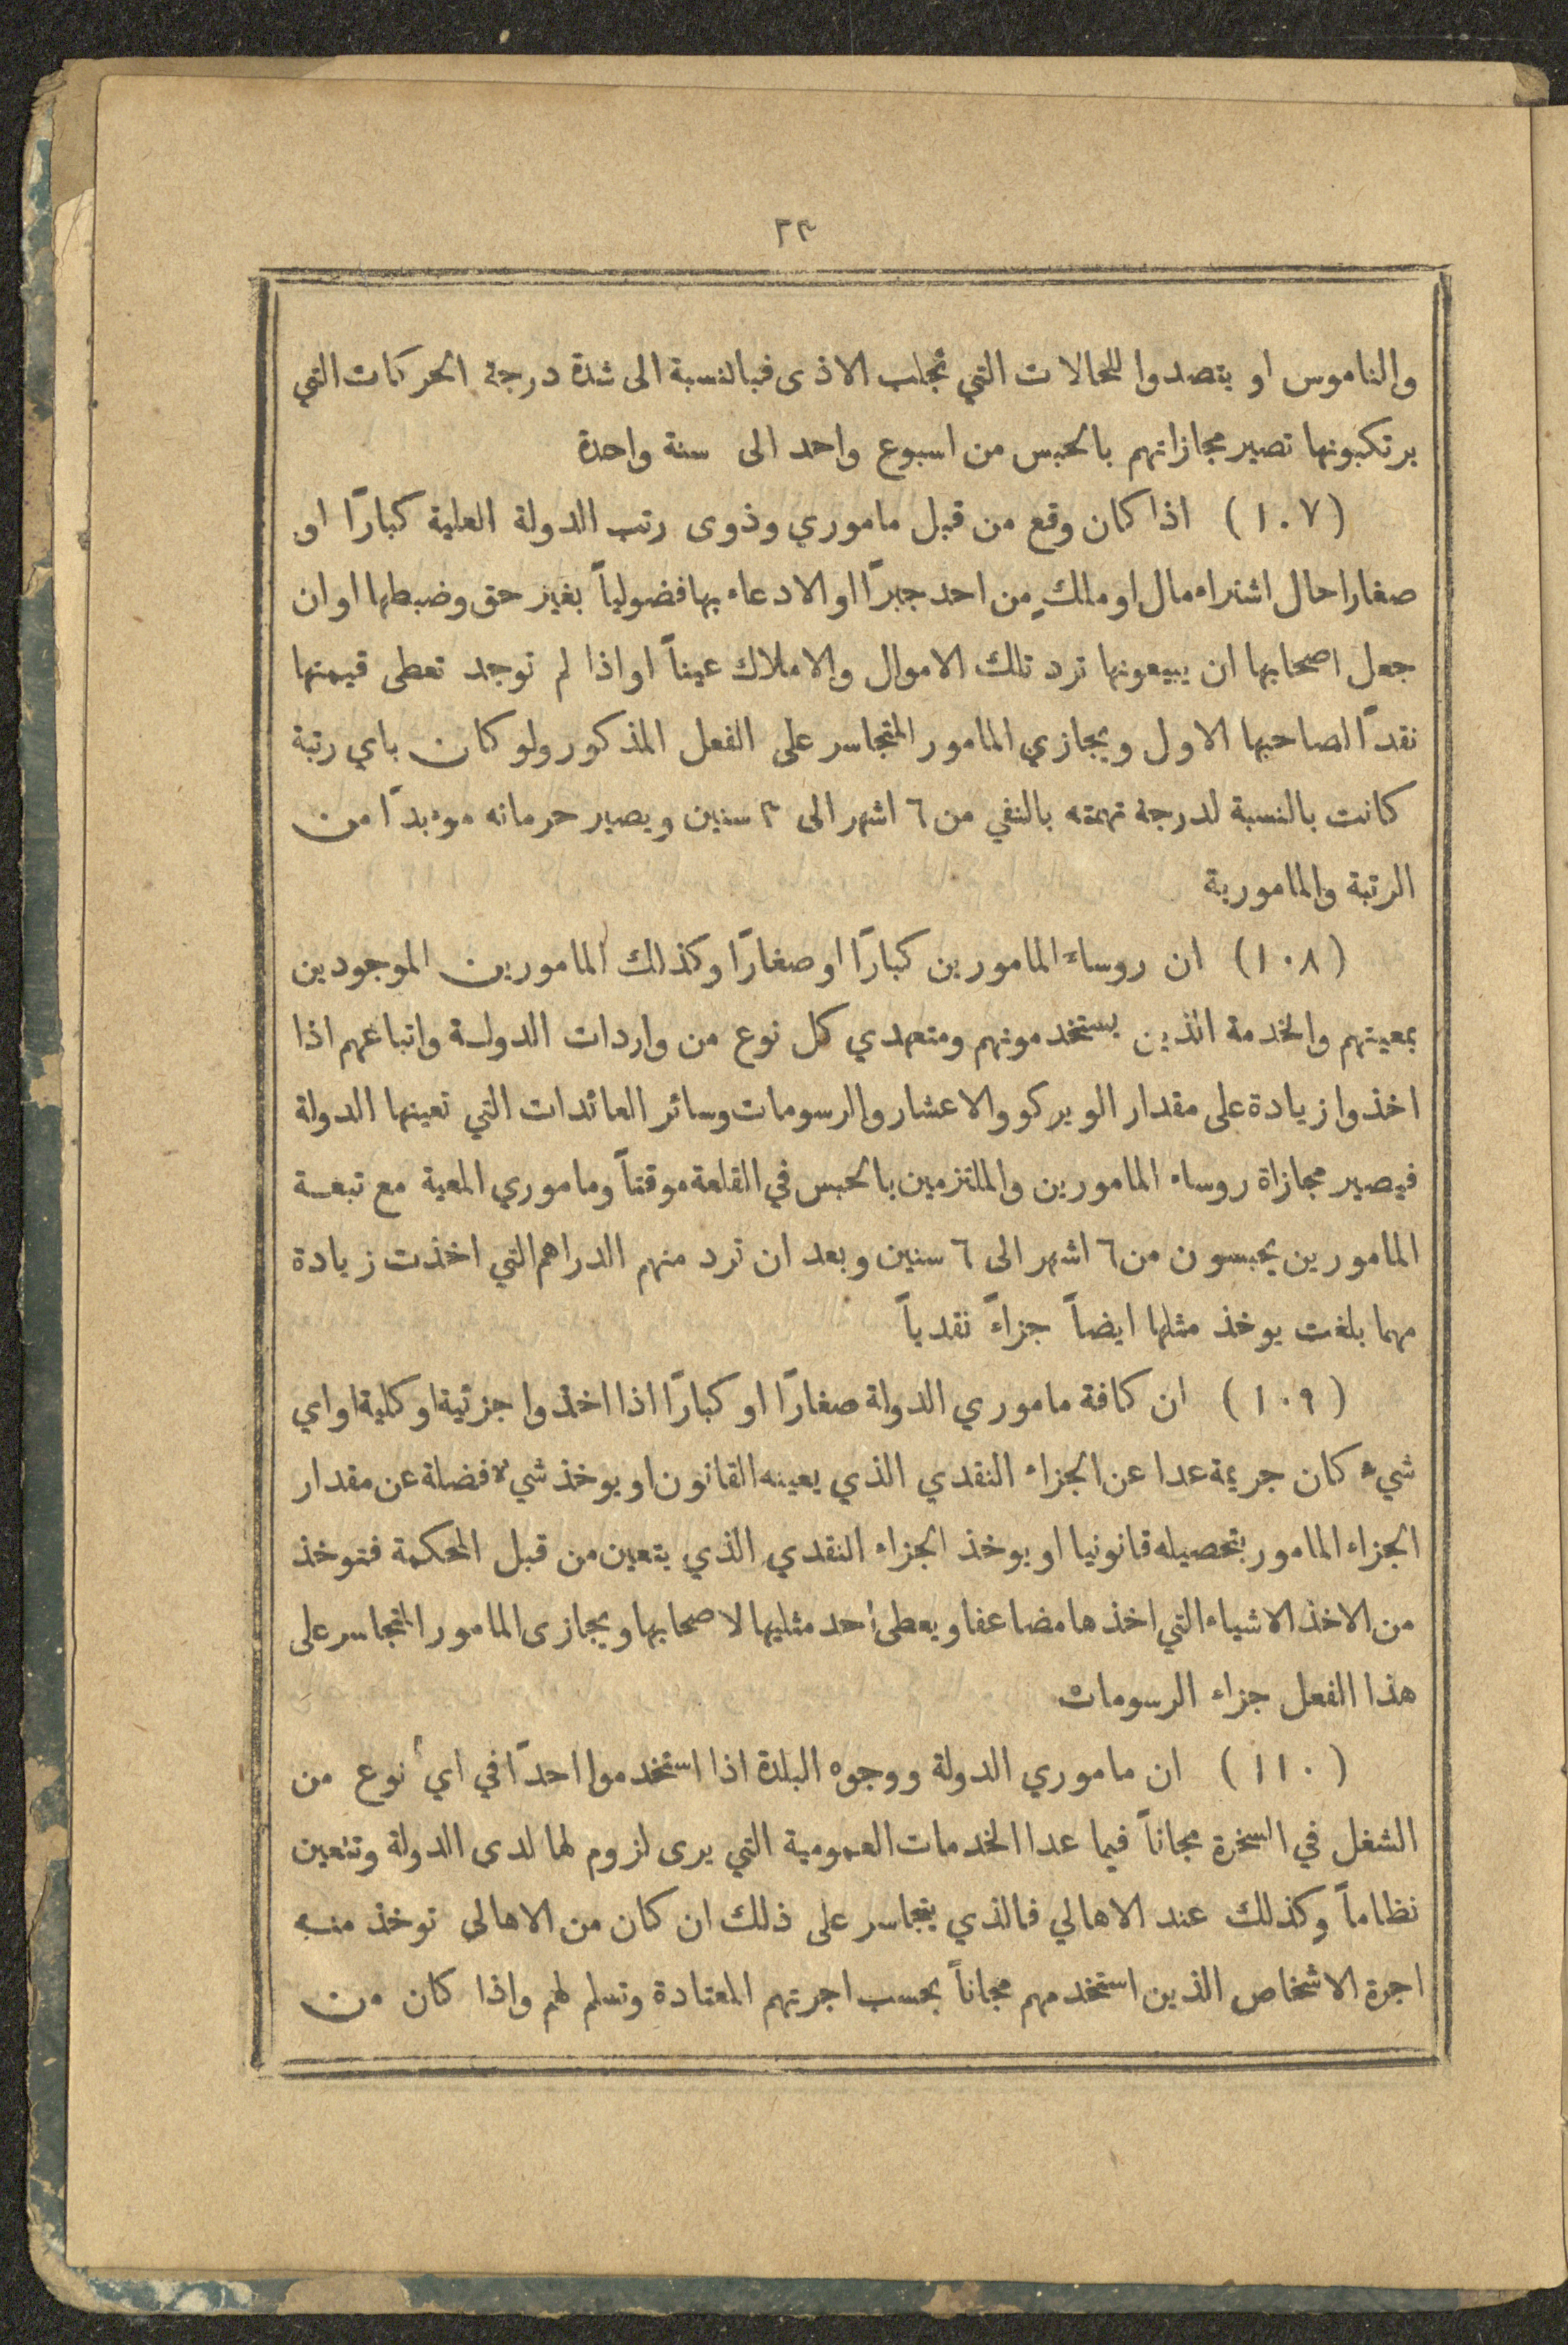 ٢٣
والناموس او يتصدوا للحالات التي تجلب الاذى فبالنسبة الى شدة درجة الحركات التي
يرتكبونها تصير مجازاتهم بالحبس من اسبوع واحد الى سنة واحدة
(١٠٧) اذا كان وقع من قبل ماموري وذوى رتب الدولة العلية كبارًا او
صغارا حال اشتراء مال او ملكٍ من احد جبرًا او الادعاء بها فضولياً بغير حق وضبطها او ان
جعل اصحابها ان يبيعونها ترد تلك الاموال والاملاك عيناً او اذا لم توجد تعطى قيمتها
نقدًا لصاحبها الاول ويجازي المامور المتجاسر على الفعل المذكور ولو كان باي رتبة
كانت بالنسبة لدرجة تهمته بالنفي من ٦ اشهر الى ٣ سنين ويصير حرمانه موءبدًا من
الرتبة والمامورية
(١٠٨) ان روساء المامورين كبارًا او صغارًا وكذلك المامورين الموجودين
بمعيتهم والخدمة الذين يستخدمونهم ومتعهدي كل نوع من واردات الدولة واتباعهم اذا
اخذوا زيادة على مقدار الويركو والاعشار والرسومات وسائر العائدات التي تعينها الدولة
فيصير مجازاة روساء المامورين والملتزمين بالحبس في القلعة موقتاً وماموري المعية مع تبعة
المامورين يحبسون من ٦ اشهر الى ٦ سنين وبعد ان ترد منهم الدراهم التي اخذت زيادة
مهما بلغت يوخذ مثلها ايضاً جزاءً نقدياً
(١٠٩) ان كافة ماموري الدولة صغارًا او كبارًا اذا اخذوا جزئية او كلية او اي
شيء كان جريمة عدا عن الجزاء النقدي الذي يعينه القانون او يوخذ شيء فضلة عن مقدار
الجزاء المامور بتحصيله قانونيا او يوخذ الجزاء النقدي الذي يتعين من قبل المحكمة فتوخذ
من الاخذ الاشياء التي اخذها مضاعفا ويعطى احد مثليها لاصحابها ويجازى المامور المتجاسر على
هذا الفعل جزاء الرسومات
(١١٠) ان ماموري الدولة ووجوه البلدة اذا استخدموا احدًا في اي نوع من
الشغل في السخرة مجاناً فيما عدا الخدمات العمومية التي يرى لزوم لها لدى الدولة وتتعين
نظاماً وكذلك عند الاهالي فالذي يتجاسر على ذلك ان كان من الاهالى توخذ منه
اجرة الاشخاص الذين استخدمهم مجاناً بحسب اجرتهم المعتادة وتسلم لهم واذا كان من